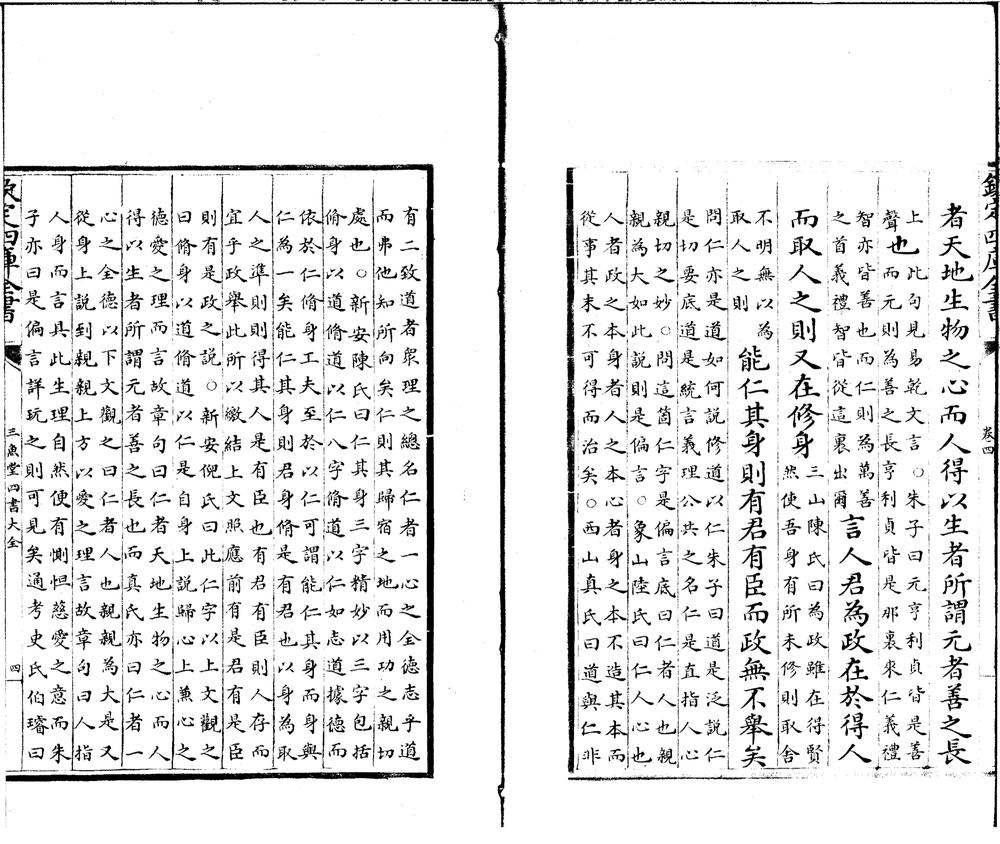 欽定四庫全書
卷四
者天地生物之心而人得以生者所謂元者善之長
上
聲
也
此句見易乾文言○朱子曰元亨利貞皆是善
而元則為善之長亨利貞皆是那裏來仁義禮
智亦皆善也而仁則為萬善
之首義禮智皆從這裏出爾
言人君為政在於得人
而取人之則又在修身
三山陳氏曰為政雖在得賢
然使吾身有所未修則取舍
不明無以為
取人之則
能仁其身則有君有臣而政無不舉矣
問仁亦是道如何說修道以仁朱子曰道是泛說仁
是切要底道是統言義理公共之名仁是直指人心
親切之妙○問這箇仁字是偏言底曰仁者人也親
親為大如此說則是偏言○象山陸氏曰仁人心也
人者政之本身者人之本心者身之本不造其本而
從事其末不可得而治矣○西山真氏曰道與仁非
有二致道者衆理之總名仁者一心之全德志乎道
而弗他知所向矣仁則其歸宿之地而用功之親切
處也○新安陳氏曰仁其身三字精妙以三字包括
脩身以道脩道以仁八字脩道以仁如志道據德而
依於仁脩身工夫至於以仁可謂能仁其身而身與
仁為一矣能仁其身則君身脩是有君也以身為取
人之準則則得其人是有臣也有君有臣則人存而
宜乎政舉此所以繳結上文照應前有是君有是臣
則有是政之說○新安倪氏曰此仁字以上文觀之
曰脩身以道脩道以仁是自身上說歸心上兼心之
德愛之理而言故章句曰仁者天地生物之心而人
得以生者所謂元者善之長也而真氏亦曰仁者一
心之全德以下文觀之曰仁者人也親親為大是又
從身上說到親親上方以愛之理言故章句曰人指
人身而言具此生理自然便有惻怛慈愛之意而朱
子亦曰是偏言詳玩之則可見矣通考史氏伯璿曰
欽定四庫全書
三魚堂四書大全
四